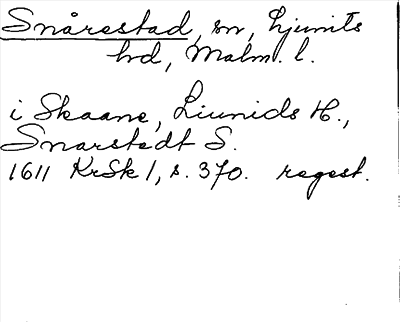 Snårestad, sn, Ljunits
hd, Malm. l.
i Skaane, Liunids H.,
Snarstedt S.
1611 KrSk 1, s. 370. regest.